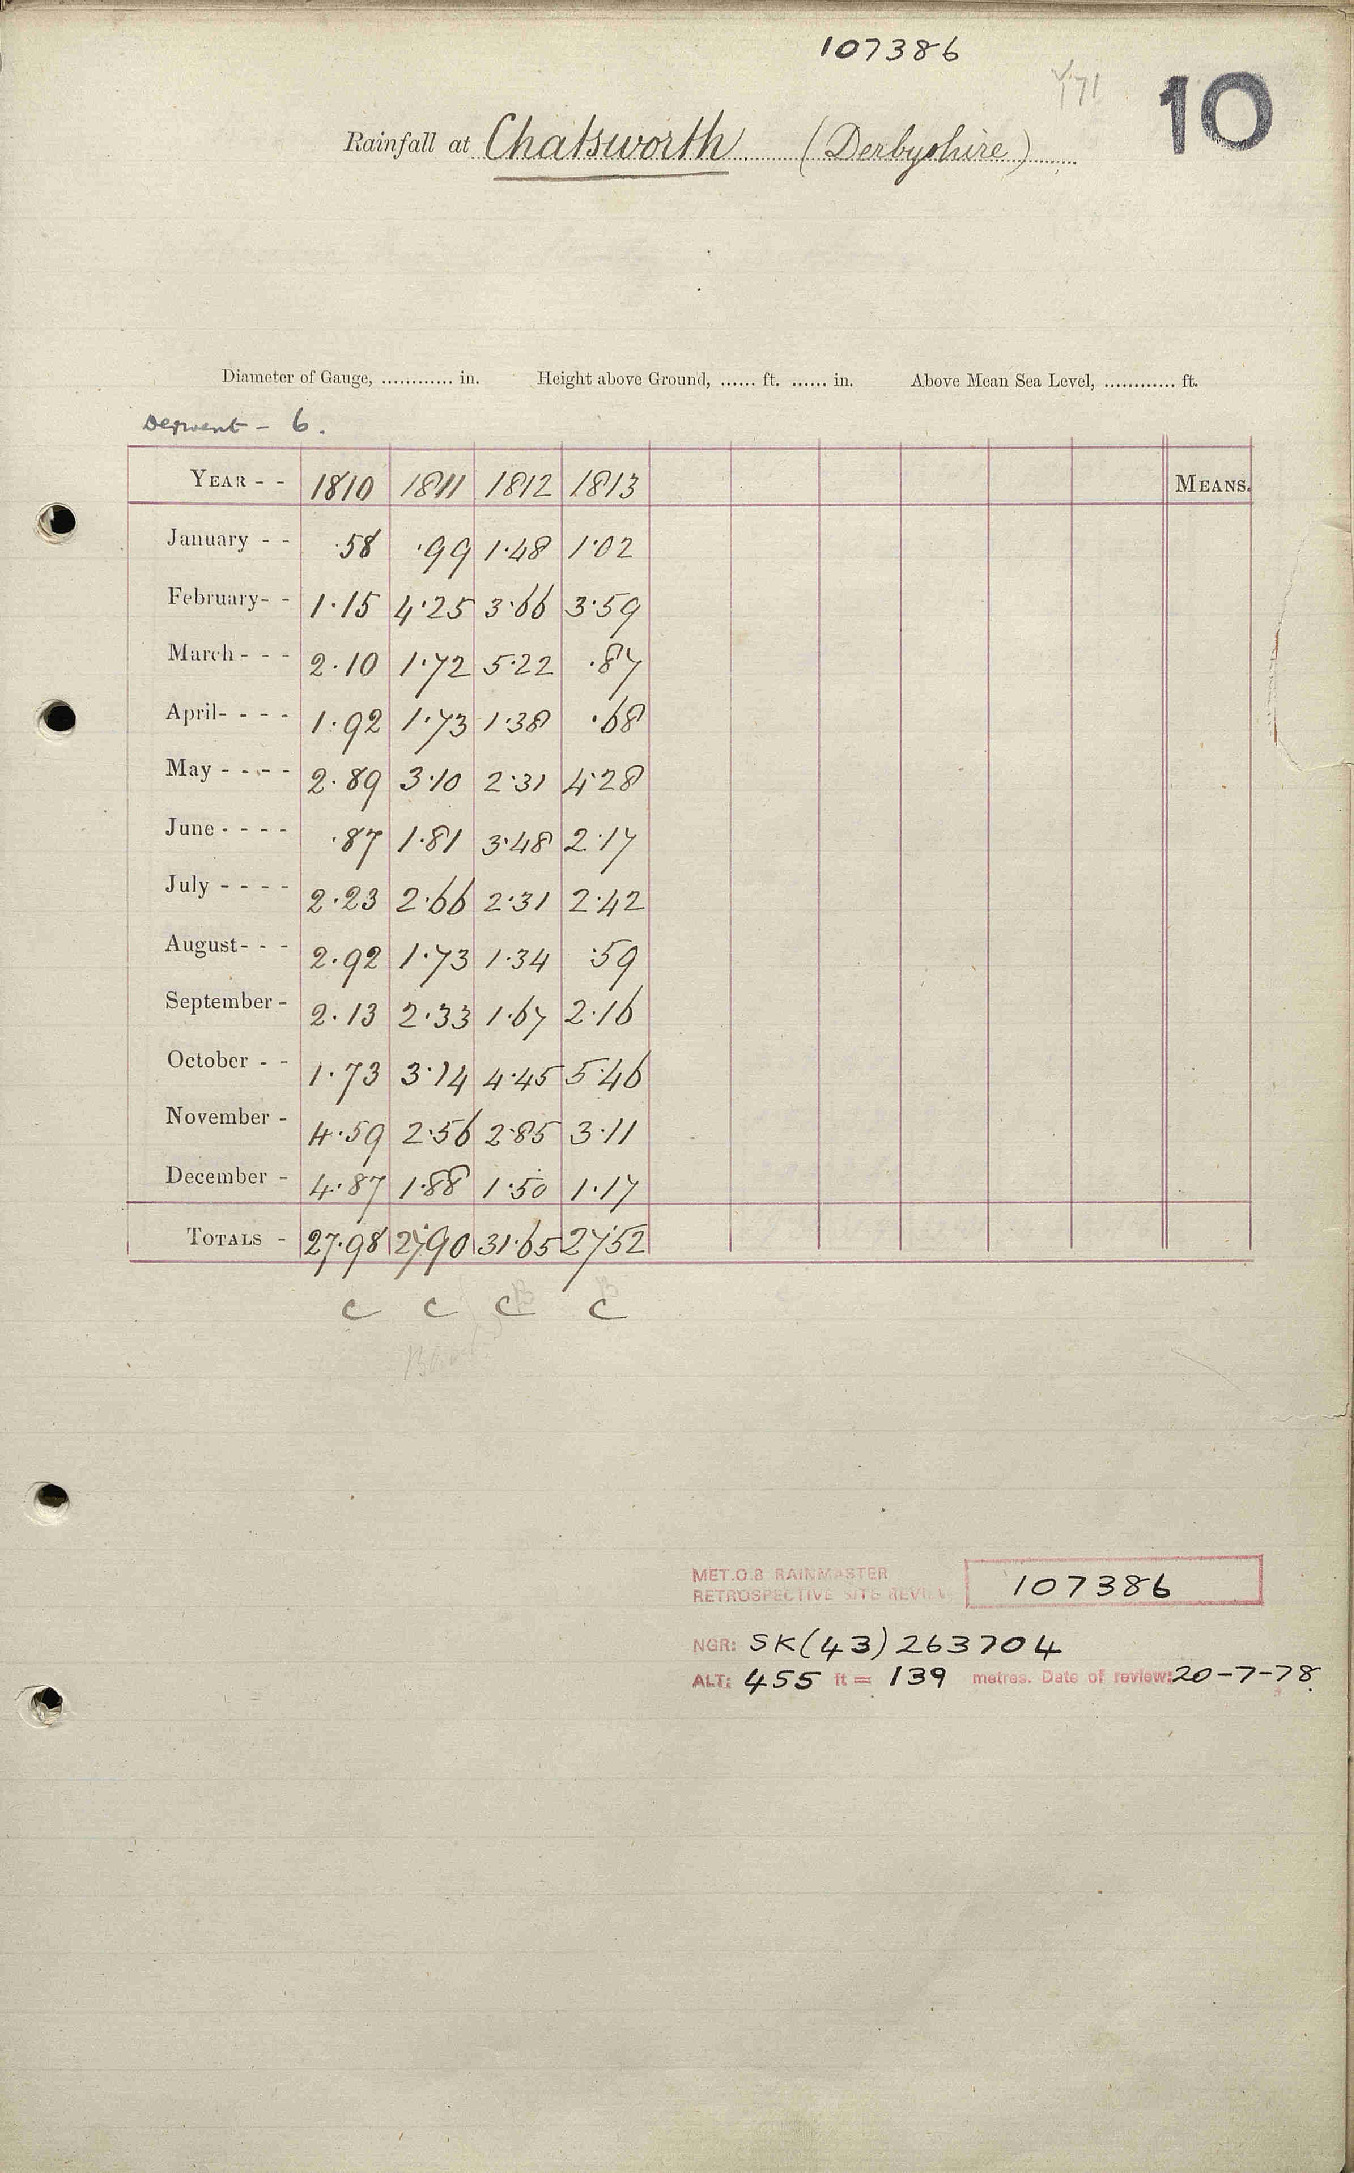 107386
171
10
Rainfall at Chatsworth (Derbyshire)
Diameter of Gauge, ............ in. Height above Ground, ...... ft. ...... in. Above Mean Sea Level, ............ ft.
Derwent - 6.
YEAR - - 1810 1811 1812 1813 MEANS.
January - - .58 .99 1.48 1.02
February- - 1.15 4.25 3.66 3.59
March - - - 2.10 1.72 5.22 .87
April- - - - 1.92 1.73 1.38 .68
May - - - - 2.89 3.10 2.31 4.28
June - - - - .87 1.81 3.48 2.17
July - - - - 2.23 2.66 2.31 2.42
August- - - 2.92 1.73 1.34 .59
September - 2.13 2.33 1.67 2.16
October - - 1.73 3.14 4.45 5.46
November - 4.59 2.56 2.85 3.11
December - 4.87 1.88 1.50 1.17
TOTALS - 27.98 27.90 31.65 27.52
C C C C
MET.O.8 RAINMASTER
RETROSPECTIVE SITE REVIEW 107386
NGR: SK(43)263704
ALT: 455 ft = 139 metres. Date of review: 20-7-78.